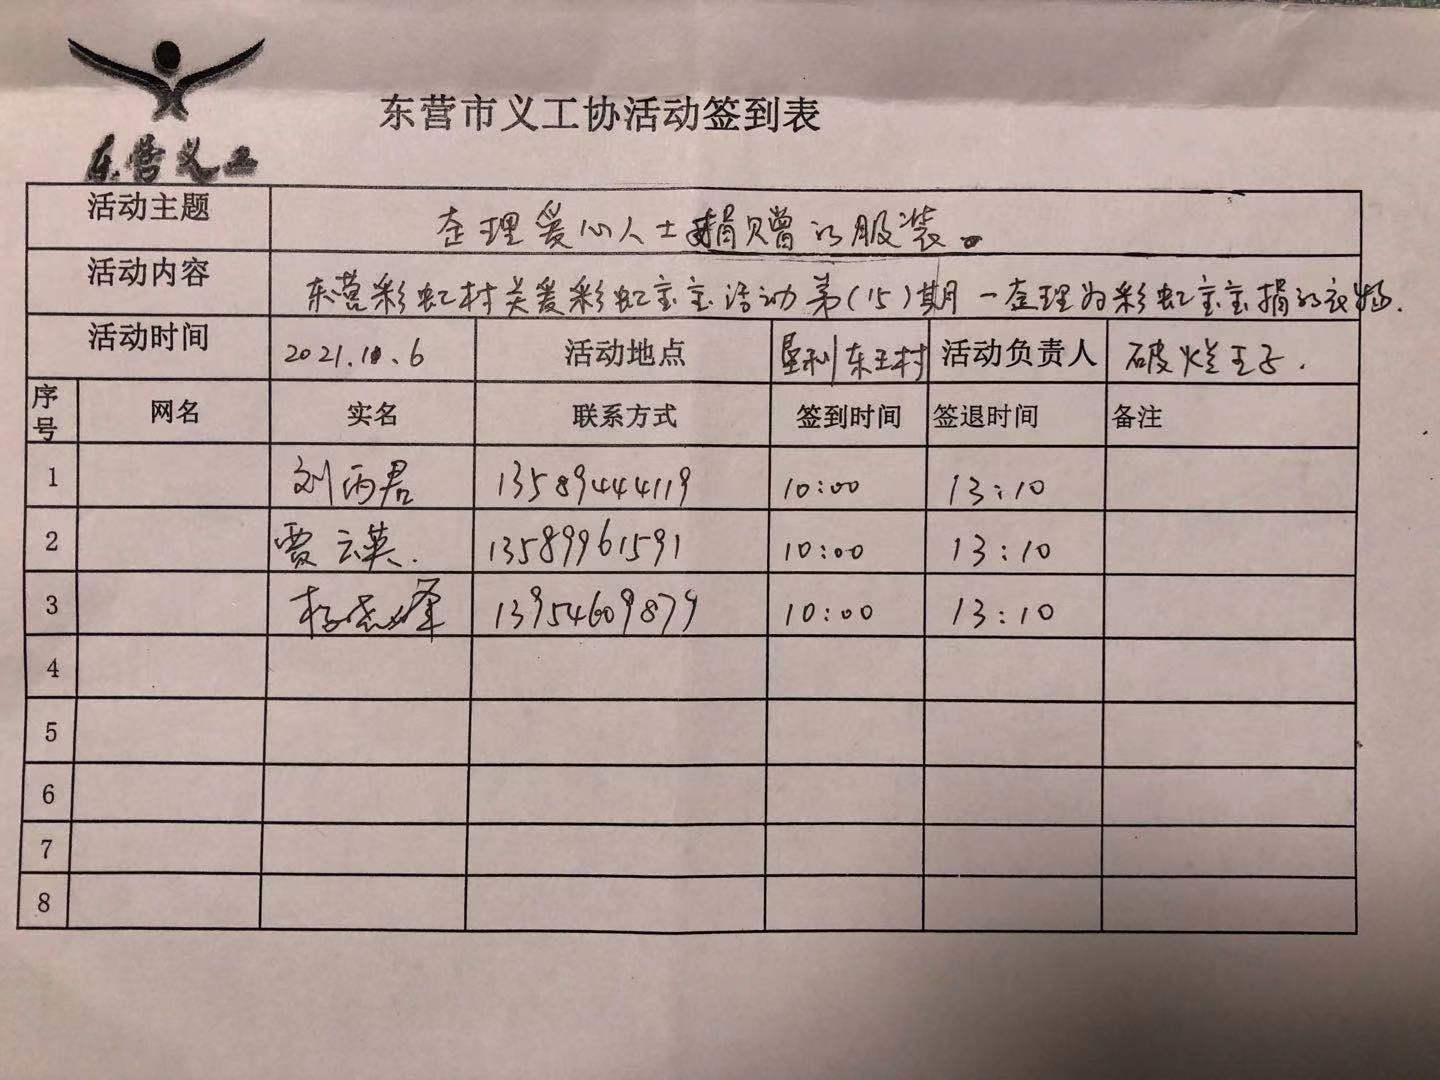 东营义工
东营市义工协活动签到表
活动主题 整理爱心人士捐赠的服装。
活动内容 东营彩虹村关爱彩虹宝宝活动第(15)期—整理为彩虹宝宝捐的衣物.
活动时间 2021.10.6 活动地点 垦利东王村 活动负责人 破烂王子.
序号 网名 实名 联系方式 签到时间 签退时间 备注
1 刘丙君 13589444119 10:00 13:10
2 贾云英. 13589961591 10:00 13:10
3 13954609879 10:00 13:10
4
5
6
7
8